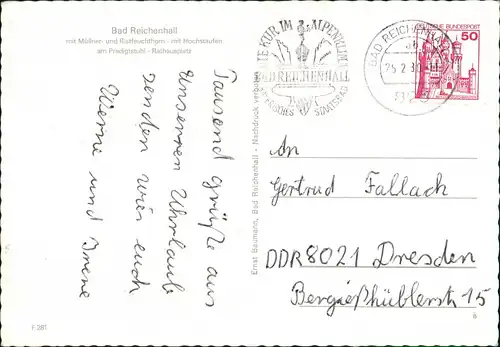 Bad Reichenhall
mit Müllner- und Ristfeuchthorn - mit Hochstaufen
am Predigtstuhl - Rathausplatz
Tausend grüße aus
Unserren Uhrlaub
senden wir euch
Werne und Irene
Ernst Baumann, Bad Reichenhall - Nachdruck verboten
KUR IM ALPENKLIMA
BAD REICHENHALL
BAYERISCHES STAATSBAD
BAD REICHENHALL
25.2.80
DEUTSCHE BUNDESPOST
50
An
Gertrud Fallach
DDR 8021 Dresden
Bergießhüblerstr 15
F 281
6